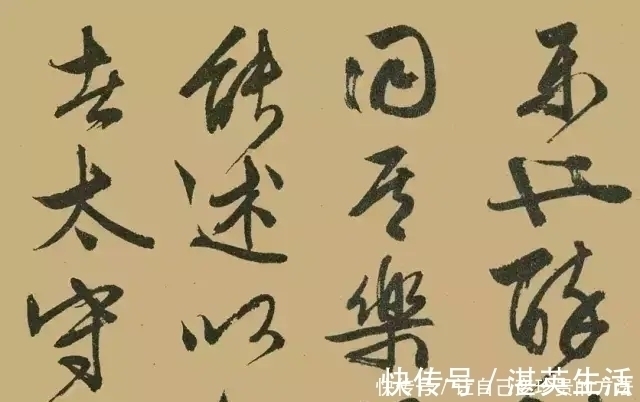 乐也醉
同其樂
能述以
者太守
快传号/湛英生活